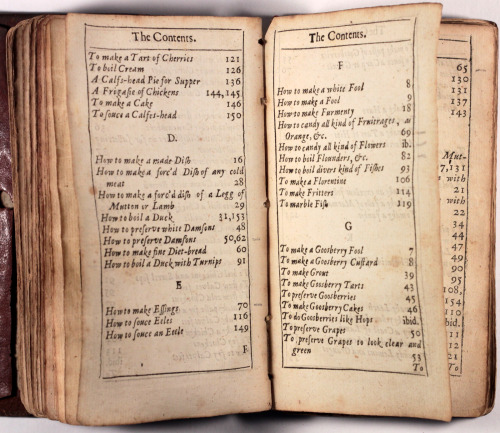 The Contents.
To make a Tart of Cherries 121
To boil Cream 126
A Calfs-head Pie for Supper 136
A Frigasie of Chickens 144,145
To make a Cake 146
To souce a Calfes-head 150
D.
How to make a made Dish 16
How to make a forc'd Dish of any cold
meat 28
How to make a forc'd dish of a Legg of
Mutton or Lamb 29
How to boil a Duck 31,153
How to preserve white Damsons 48
How to preserve Damsons 50,62
How to make fine Diet-bread 60
How to boil a Duck with Turnips 91
E
How to make Essings 70
How to souce Eeles 116
How to souce an Eele 149
F
The Contents.
F
How to make a white Fool 8
How to make a Fool 9
How to make Furmenty 18
How to candy all kind of Fruitrages, as
Orange, &c. 69
How to candy all kind of Flowers ib.
How to boil Flounders, &c. 82
How to boil divers kind of Fishes 93
To make a Florentine 106
To make Fritters 114
To marble Fish 119
G
To make a Goosberry Fool 7
To make a Goosberry Custard 8
To make Grout 39
To make Goosberry Tarts 43
To preserve Goosberries 45
To make Goosberry Cakes 46
To do Goosberries like Hops ibid.
To preserve Grapes 50
To preserve Grapes to look clear and
green 53
To
65
130
131
137
143
Mut-
7,131
with
21
with
22
34
44
47
49
90
95
108,
154
110
ibid.
11
12
21
To